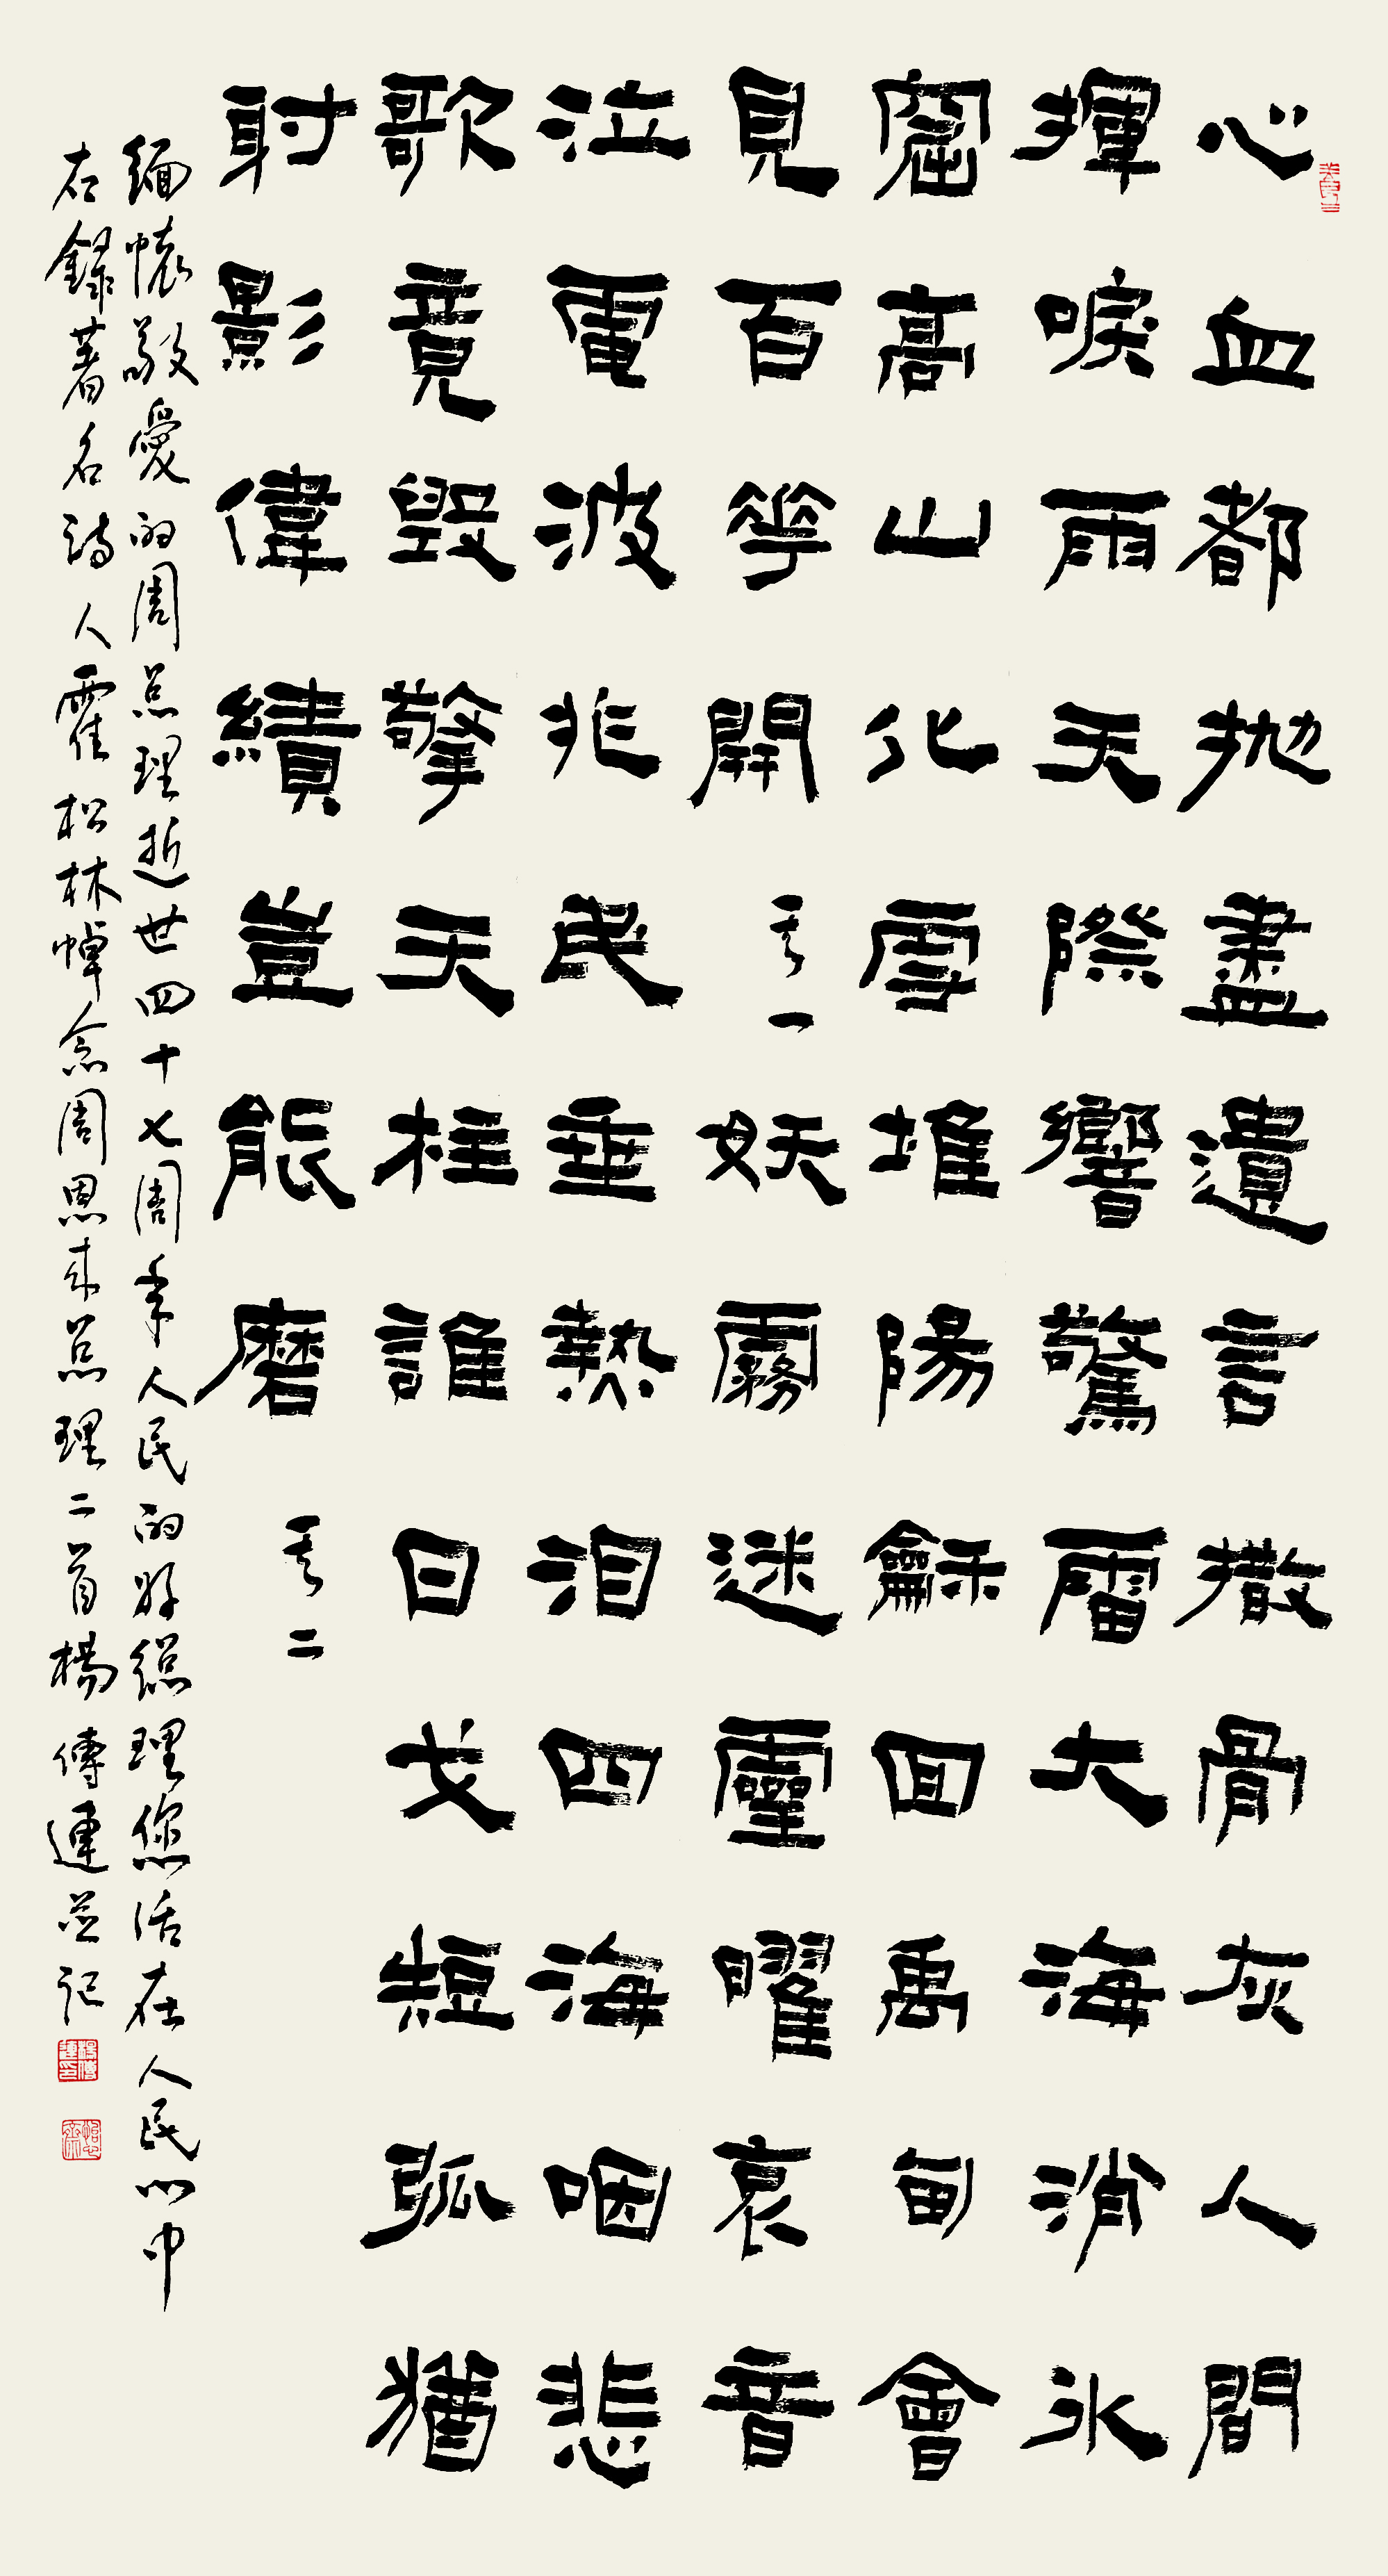 心血都抛盡遺言撒骨灰人間
揮唳雨天際響驚雷大海消冰
窟高山化雪堆陽龢回禹甸會
見百花開其一妖霧迷靈曜哀音
泣電波兆民垂熱泪四海咽悲
歌竟毀擎天柱誰曰戈短弧猶
射影偉績豈能磨其二
緬懷敬愛的周总理逝世四十七周年人民的好總理您活在人民心中
右錄著名詩人霍松林悼念周恩来总理二首楊傳運並記